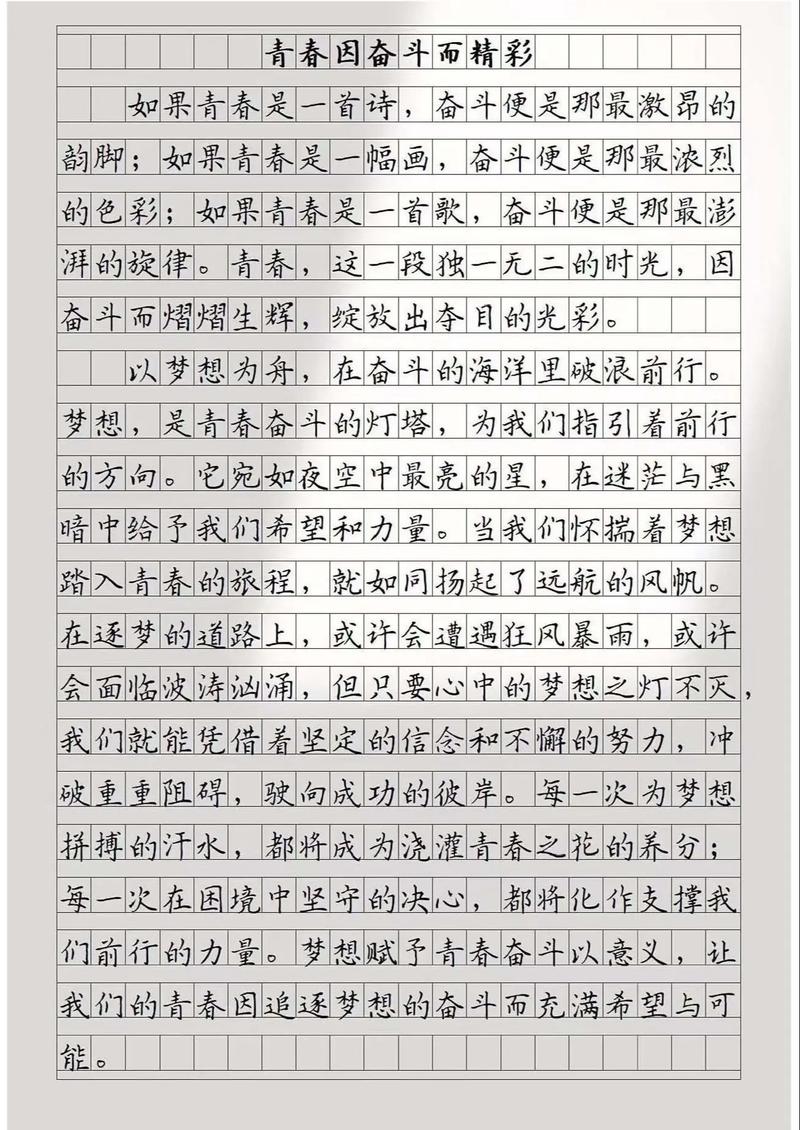 青春因奋斗而精彩
如果青春是一首诗，奋斗便是那最激昂的
韵脚；如果青春是一幅画，奋斗便是那最浓烈
的色彩；如果青春是一首歌，奋斗便是那最澎
湃的旋律。青春，这一段独一无二的时光，因
奋斗而熠熠生辉，绽放出夺目的光彩。
以梦想为舟，在奋斗的海洋里破浪前行。
梦想，是青春奋斗的灯塔，为我们指引着前行
的方向。它宛如夜空中最亮的星，在迷茫与黑
暗中给予我们希望和力量。当我们怀揣着梦想
踏入青春的旅程，就如同扬起了远航的风帆。
在逐梦的道路上，或许会遭遇狂风暴雨，或许
会面临波涛汹涌，但只要心中的梦想之灯不灭，
我们就能凭借着坚定的信念和不懈的努力，冲
破重重阻碍，驶向成功的彼岸。每一次为梦想
拼搏的汗水，都将成为浇灌青春之花的养分；
每一次在困境中坚守的决心，都将化作支撑我
们前行的力量。梦想赋予青春奋斗以意义，让
我们的青春因追逐梦想的奋斗而充满希望与可
能。